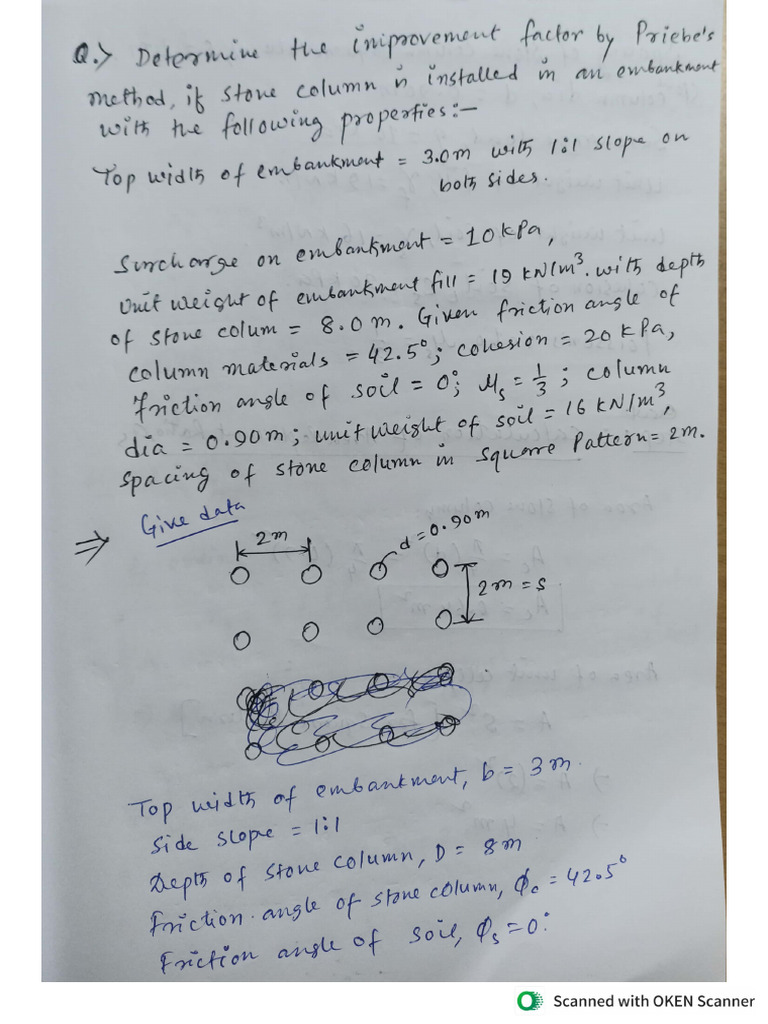 Q.> Determine the iniprovement factor by Priebe's
method, if stone column is installed in an embankment
with the following properties:-
Top width of embankment = 3.0m with 1:1 slope on
both sides.
Surcharge on embankment = 10kPa,
unit weight of embankment fill = 19 kN/m³. with depth
of stone colum = 8.0 m. Given friction angle of
column materials = 42.5°; cohesion = 20 kPa,
friction angle of soil = 0°; μs = 1/3; column
dia = 0.90m; unit weight of soil = 16 kN/m³,
spacing of stone column in square Pattern = 2m.
⇒ Give data
2m
d = 0.90m
2m = s
Top width of embankment, b = 3m.
Side slope = 1:1
Depth of stone column, D = 8m
Friction angle of stone column, φc = 42.5°
Friction angle of soil, φs = 0°.
Scanned with OKEN Scanner